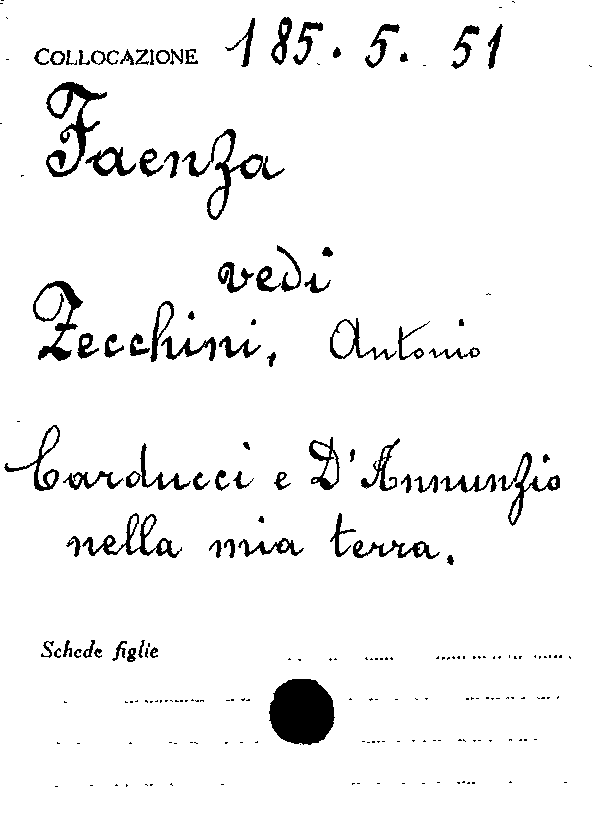 COLLOCAZIONE 185. 5. 51
Faenza
vedi
Zecchini, Antonio
Carducci e D'Annunzio
nella mia terra.
Schede figlie